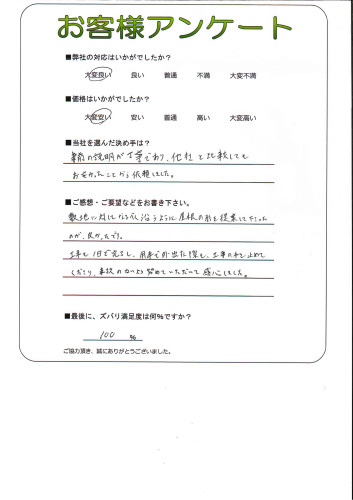 お客様アンケート
■弊社の対応はいかがでしたか?
大変良い 良い 普通 不満 大変不満
■価格はいかがでしたか?
大変安い 安い 普通 高い 大変高い
■当社を選んだ決め手は?
の説明が丁寧であり、他社と比較しても
お安かったことから依頼しました。
■ご感想・ご要望などをお書き下さい。
敷地に対して沿うように屋根の形を提案して下さった
のが、良かったです。
工事も1日で完了し、用事で外出た際も、工事の手を止めて
くださり、事故のないよう努めていただいて感心しました。
■最後に、ズバリ満足度は何%ですか?
100 %
ご協力頂き、誠にありがとうございました。